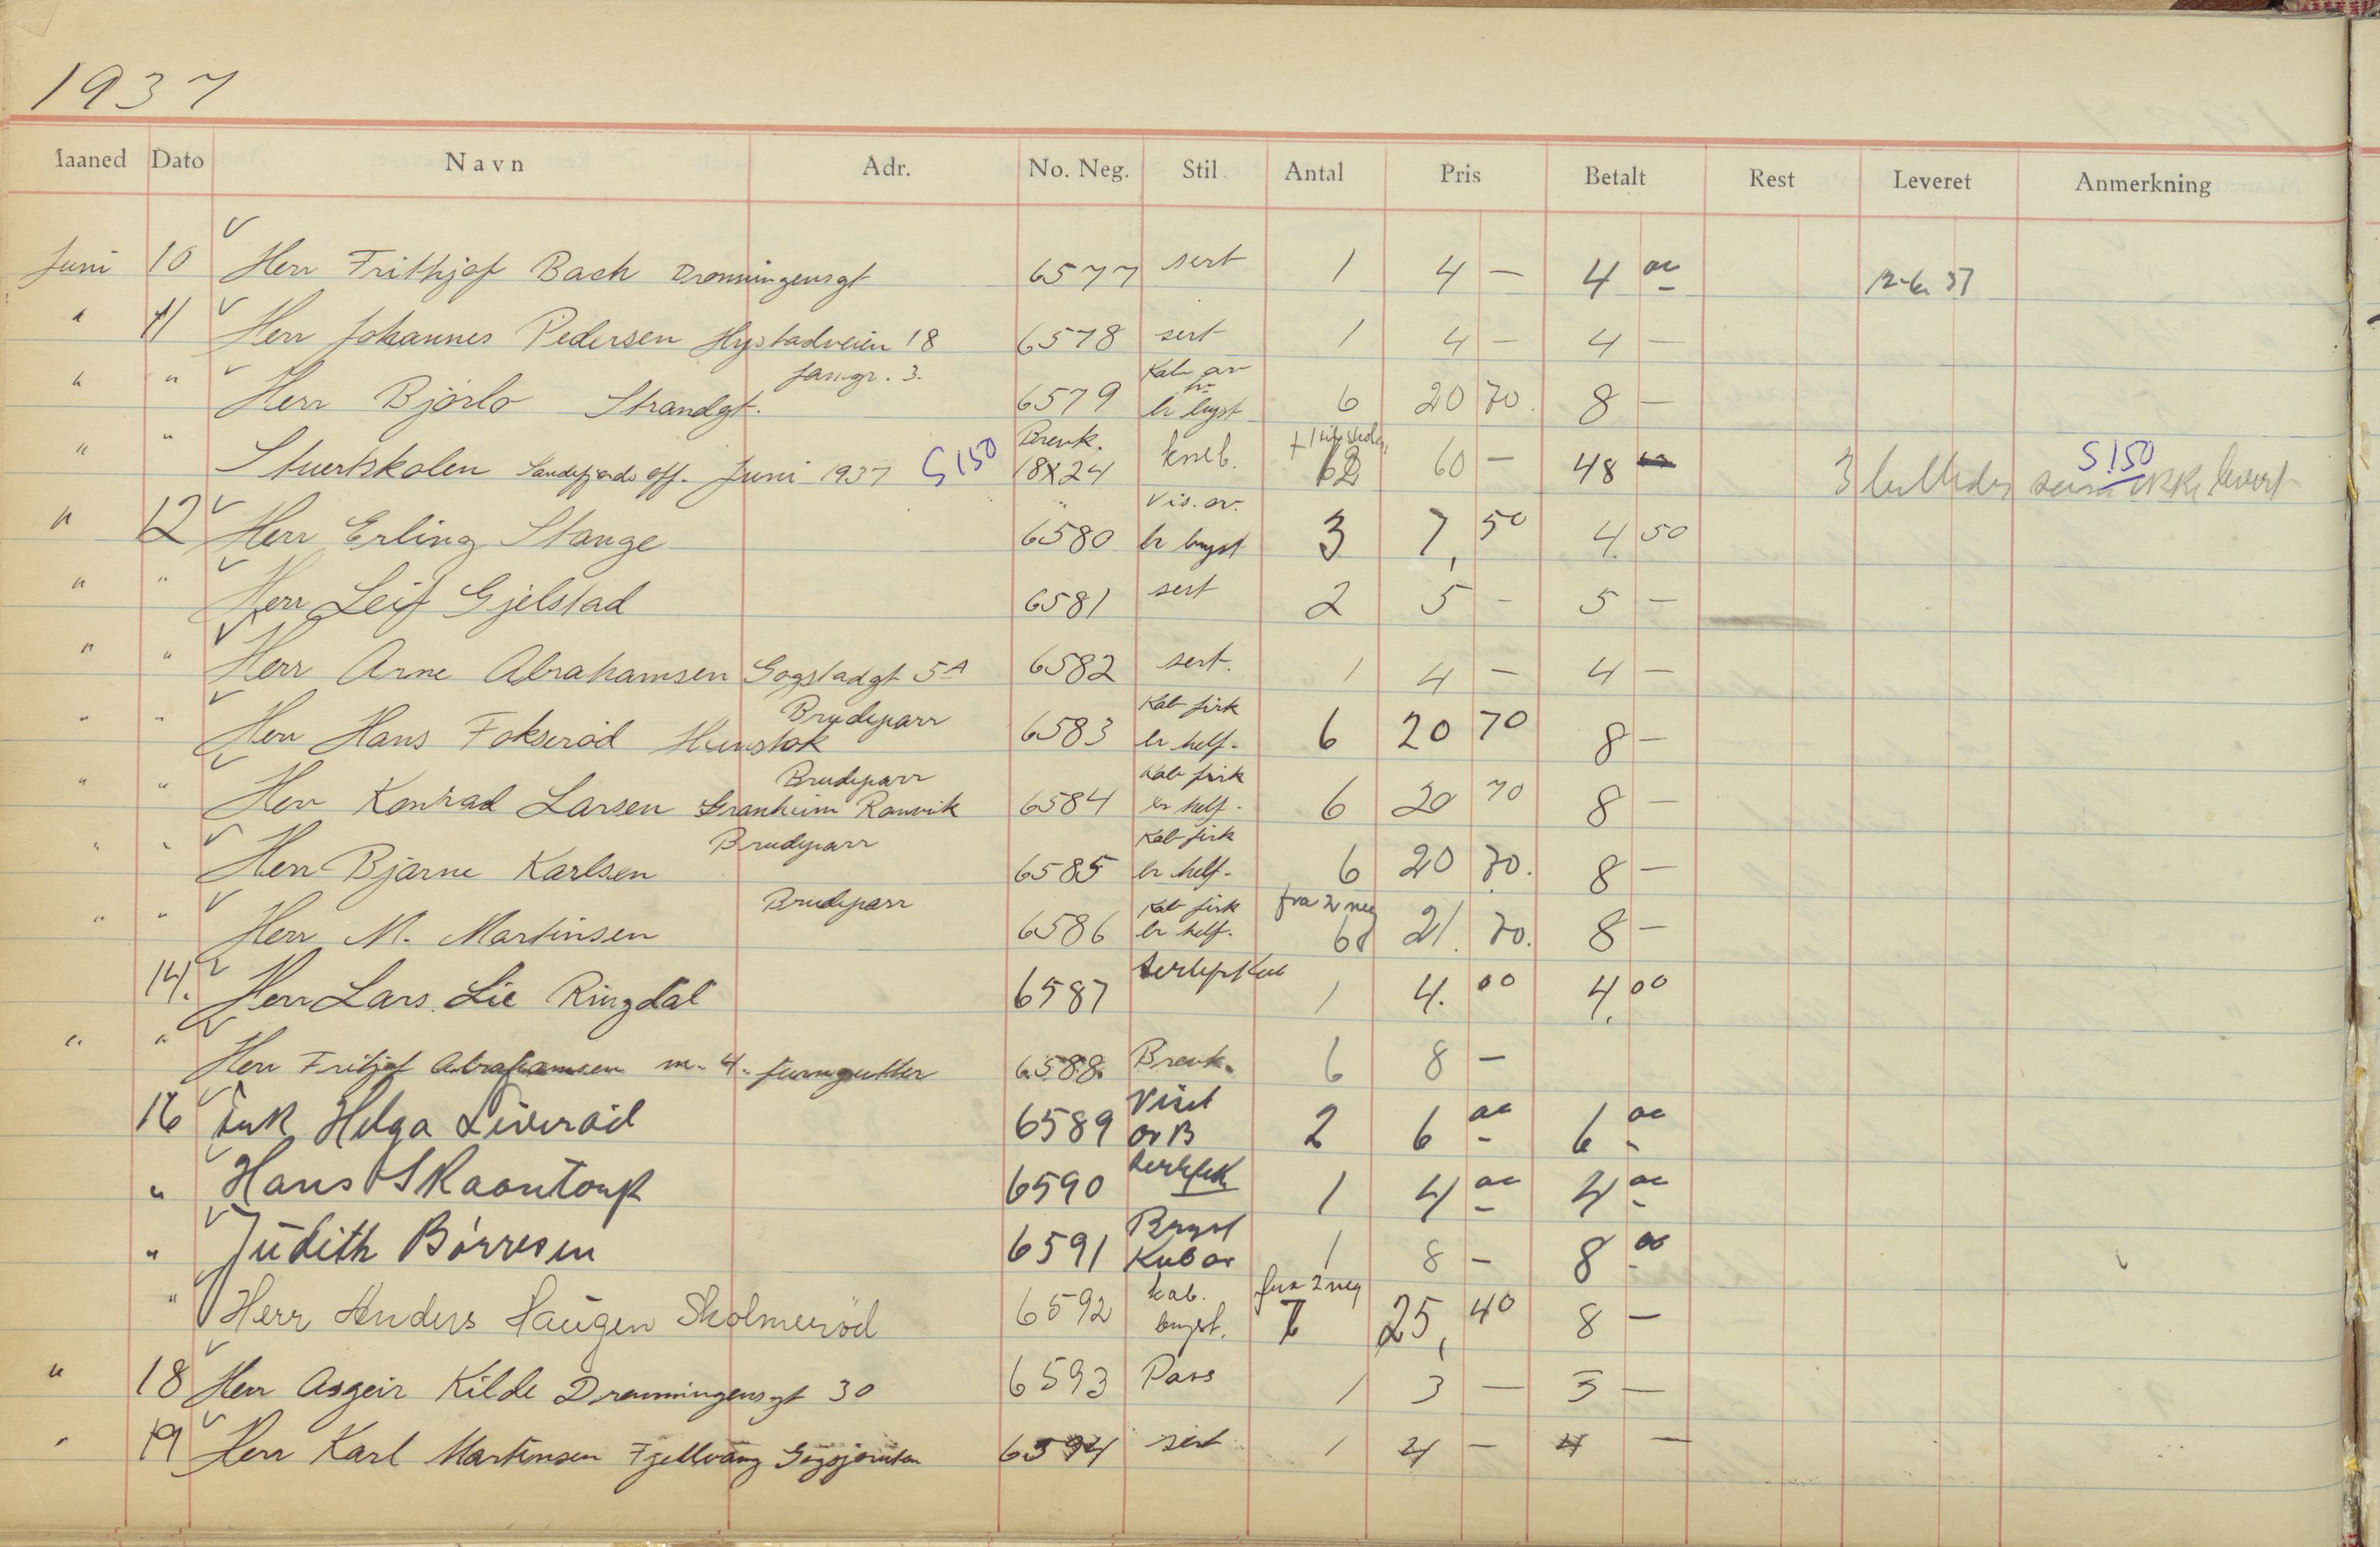 1937
Maaned Dato Navn Adr. No. Neg. Stil Antal Pris Betalt Rest Leveret Anmerkning
Juni 10 Herr Frithjof Bach Dronningensgt 6577 sert 1 4 — 4 00 12-6 37
" 11 Herr Johannes Pedersen Hystadveien 18 6578 sert 1 4 — 4 —
" " Herr Bjørlo Strandgt. 3. 6579 Kab av br byst 6 20 70. 8 —
" " Stuertskolen Sandefjords off. Juni 1937 S150 Brevk. 18x24 kneb. 12 60 — 48 3 billeder S.150 ikke levert
" 12 Herr Erling Stange 6580 Vis. ov. br byst 3 7, 50 4. 50
" " Herr Leif Gjelstad 6581 sert 2 5 - 5 —
" " Herr Arne Abrahamsen Gogstadgt 5A 6582 sert. 1 4 — 4 —
" " Herr Hans Fokserød Hunstok Brudeparr 6583 Kab firk br helf. 6 20 70 8 —
" " Herr Konrad Larsen Granheim Ranvik Brudeparr 6584 Kab firk br helf. 6 20 70 8 —
" " Herr Bjarne Karlsen Brudeparr 6585 Kab firk br helf. 6 20 70. 8 —
" " Herr M. Martinsen Brudeparr 6586 Kab firk br helf. fra 2 neg 6 21. 70. 8 —
14. Herr Lars Lie Ringdal 6587 1 4. 00 4. 00
" " Herr Fritjof Abrahamsen m. 4. turngutter 6588 Brevk. 6 8 —
16 Frk Helga Liverød 6589 Visit ov B 2 6 00 6 00
" Hans Skaontoup 6590 1 4 00 4 00
" Judith Børresen 6591 Bryst Kab ov 1 8 — 8 00
" Herr Anders Haugen Skolmerød 6592 kab. bryst. fra 2 neg 7 25, 40 8 —
" 18 Herr Asgeir Kilde Dronningensgt 30 6593 Pass 1 3 — 3 —
" 19 Herr Karl Martinsen Fjellvang 6594 sert 1 4 — 4 —